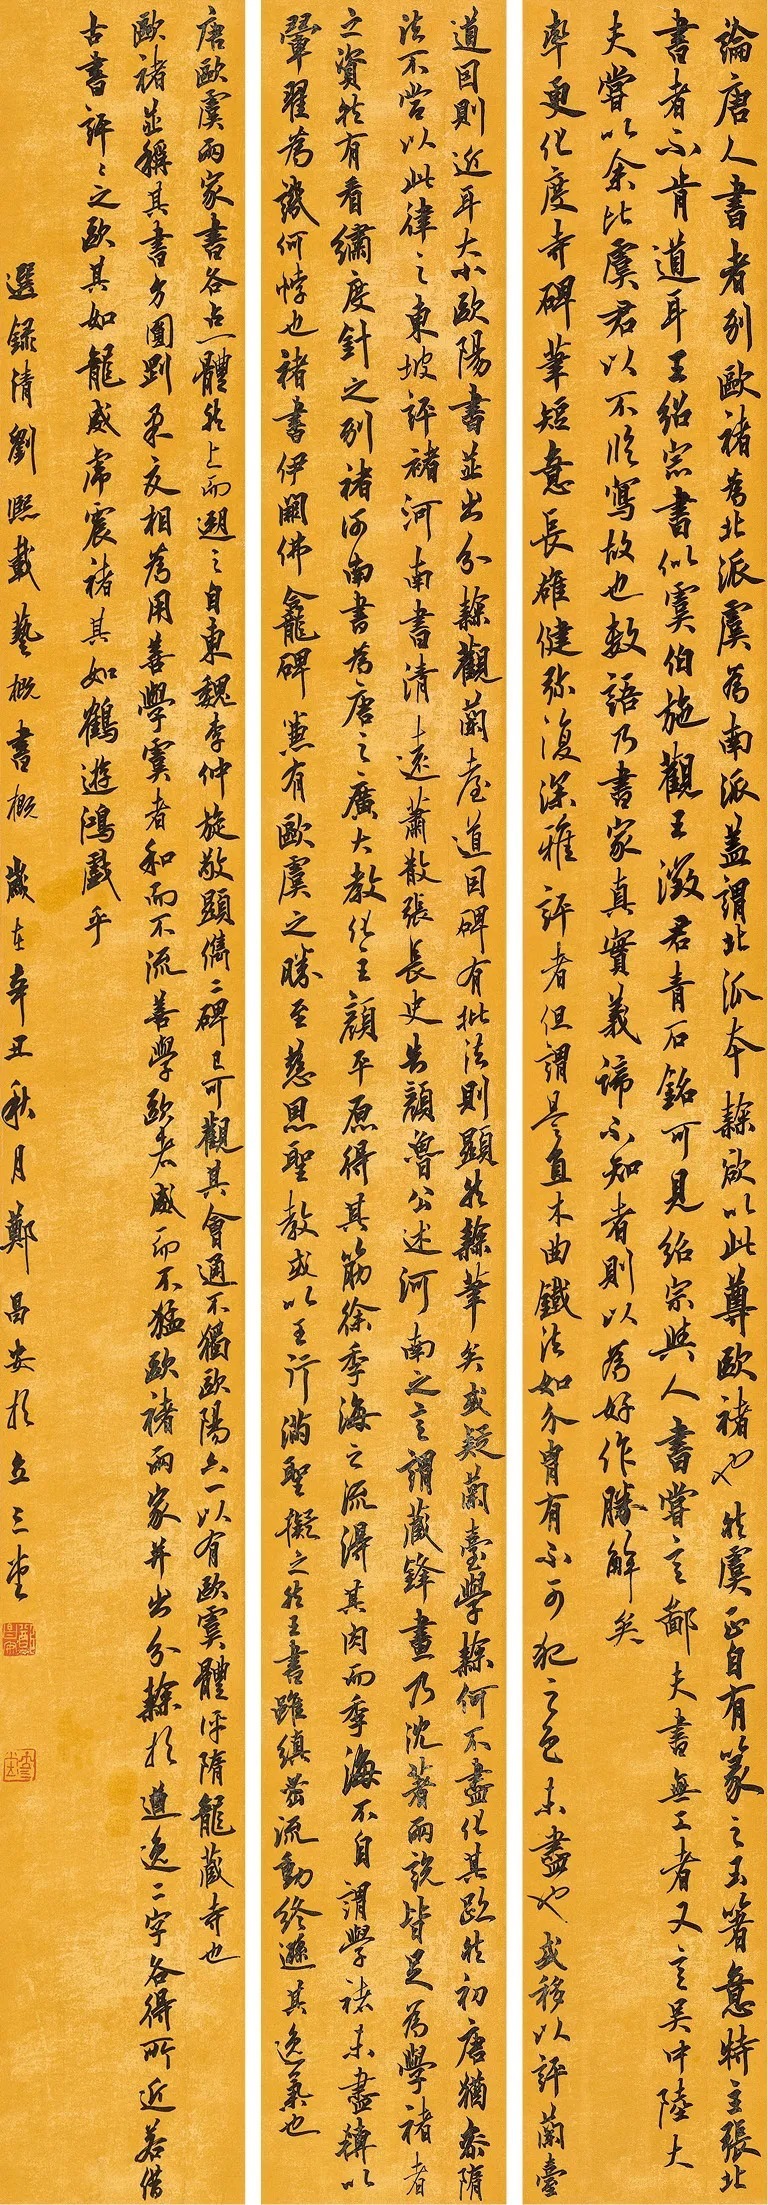 論唐人書者別歐褚為北派虞為南派蓋謂北派本隸欲以此尊歐褚也然虞正自有篆之玉箸意特主張北
書者不肯道耳王紹宗書似虞伯施觀王徵君青石銘可見紹宗與人書嘗言鄙夫書無工者又言吳中陸大
夫嘗以余比虞君以不臨寫故也數語乃書家真實義諦不知者則以為好作勝解矣
率更化度寺碑筆短意長雄健彌復深雅評者但謂是直木曲鐵法如介胄有不可犯之色未盡也或移以評蘭臺
道因則近耳大小歐陽書並出分隸觀蘭臺道因碑有批法則顯然隸筆矣或疑蘭臺學隸何不盡化其跡然初唐猶參隋
法不當以此律之東坡評褚河南書清遠蕭散張長史告顏魯公述河南之言謂藏鋒畫乃沈著兩說皆足為學褚者
之資然有看繡度針之別褚河南書為唐之廣大教化主顏平原得其筋徐季海之流得其肉而季海不自謂學褚未盡轉以
翬翟為譏何悖也褚書伊闕佛龕碑兼有歐虞之勝至慈恩聖教或以王行滿聖擬之然王書雖縝密流動終遜其逸氣也
唐歐虞兩家書各占一體然上而遡之自東魏李仲旋敬顯儁二碑已可觀其會通不獨歐陽六一以有歐虞體評隋龍藏寺也
歐褚並稱其書方圓剛柔交相為用善學虞者和而不流善學歐者威而不猛歐褚兩家并出分隸於遒逸二字各得所近若借
古書評評之歐其如龍威虎震褚其如鶴遊鴻戲乎
選錄清劉熙載藝概書概歲在辛丑秋月鄭昌安於立三堂